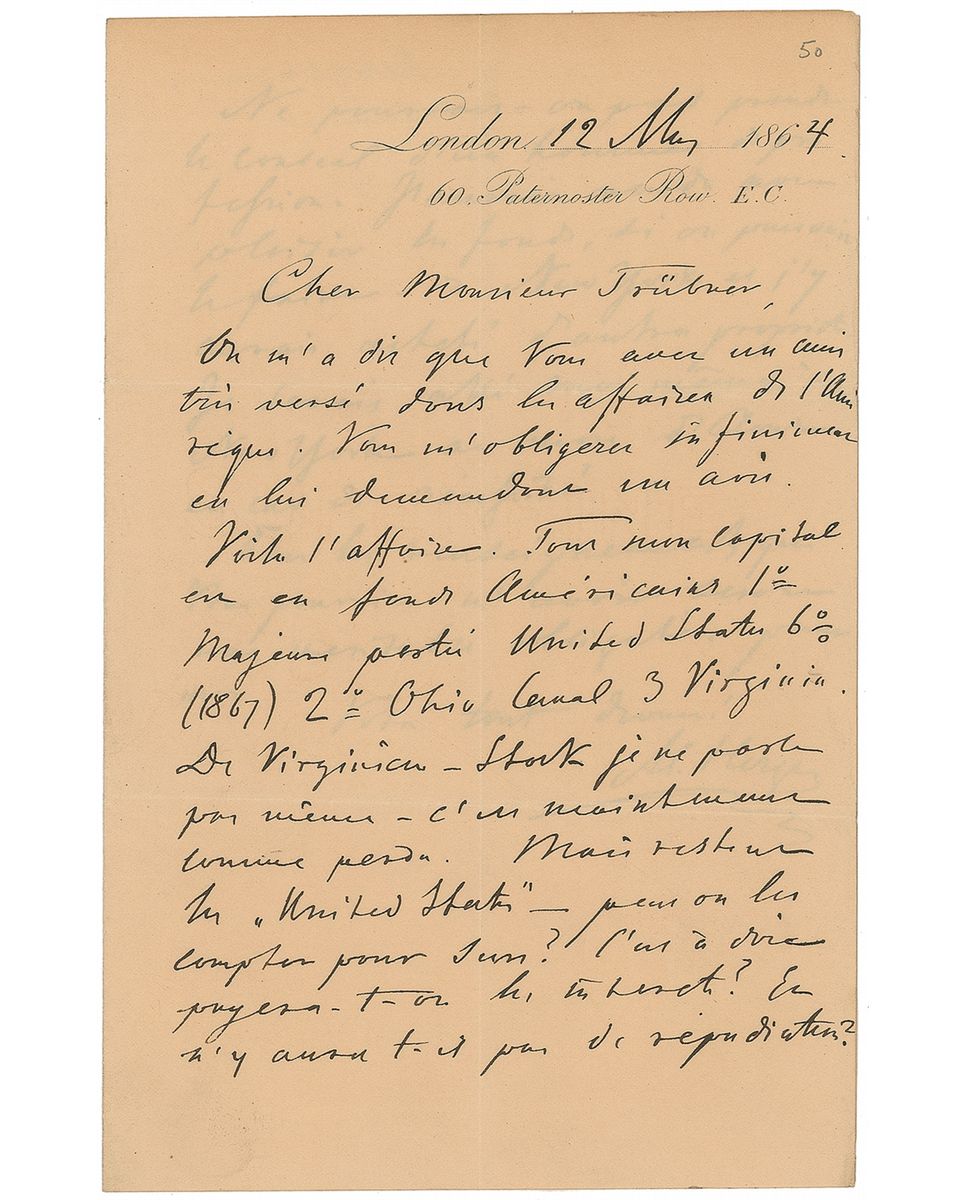 50
London, 12 May 1864.
60. Paternoster Row. E.C.
Cher Monsieur Trübner,
On m'a dit que Vous avez un ami
très versé dans les affaires de l'Amé
rique. Vous m'obligerez infiniment
en lui demandant un avis.
Voila l'affaire. Tout mon capital
est en fonds Américains 1º
Majeure partie United States 6%
(1867) 2º Ohio Canal 3 Virginia.
De Virginian-Stock je ne parle
pas même – c'est maintenant
comme perdu. Mais restent
les „United States" – peut on les
compter pour surs? C'est à dire
payera-t-on les interets? Et
n'y aura t-il pas de répudiation?